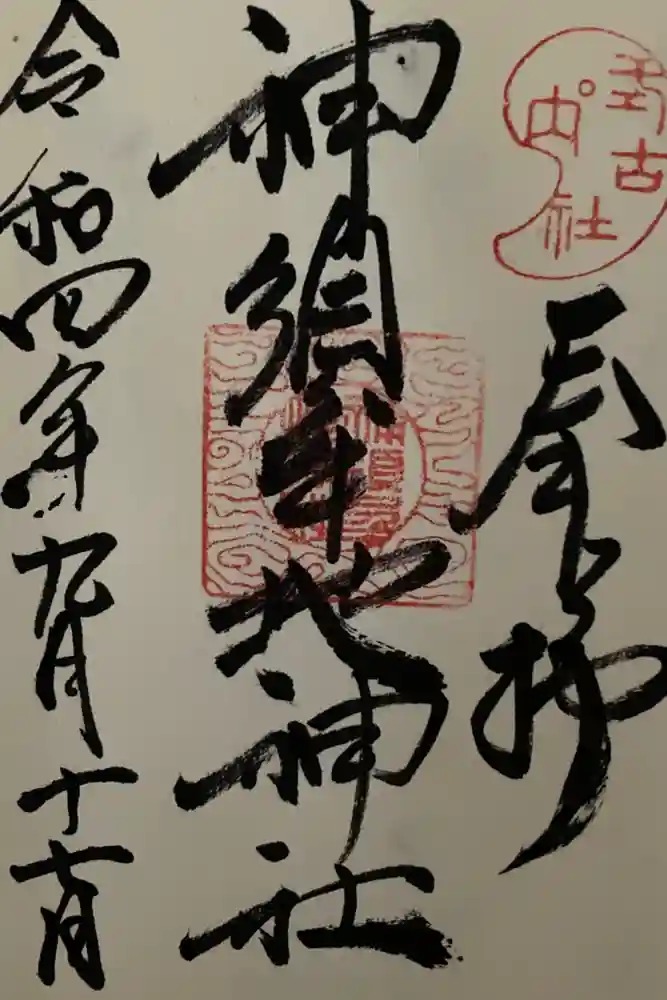 式内
古社
奉拝
神須牟地神社
令和四年九月十七日